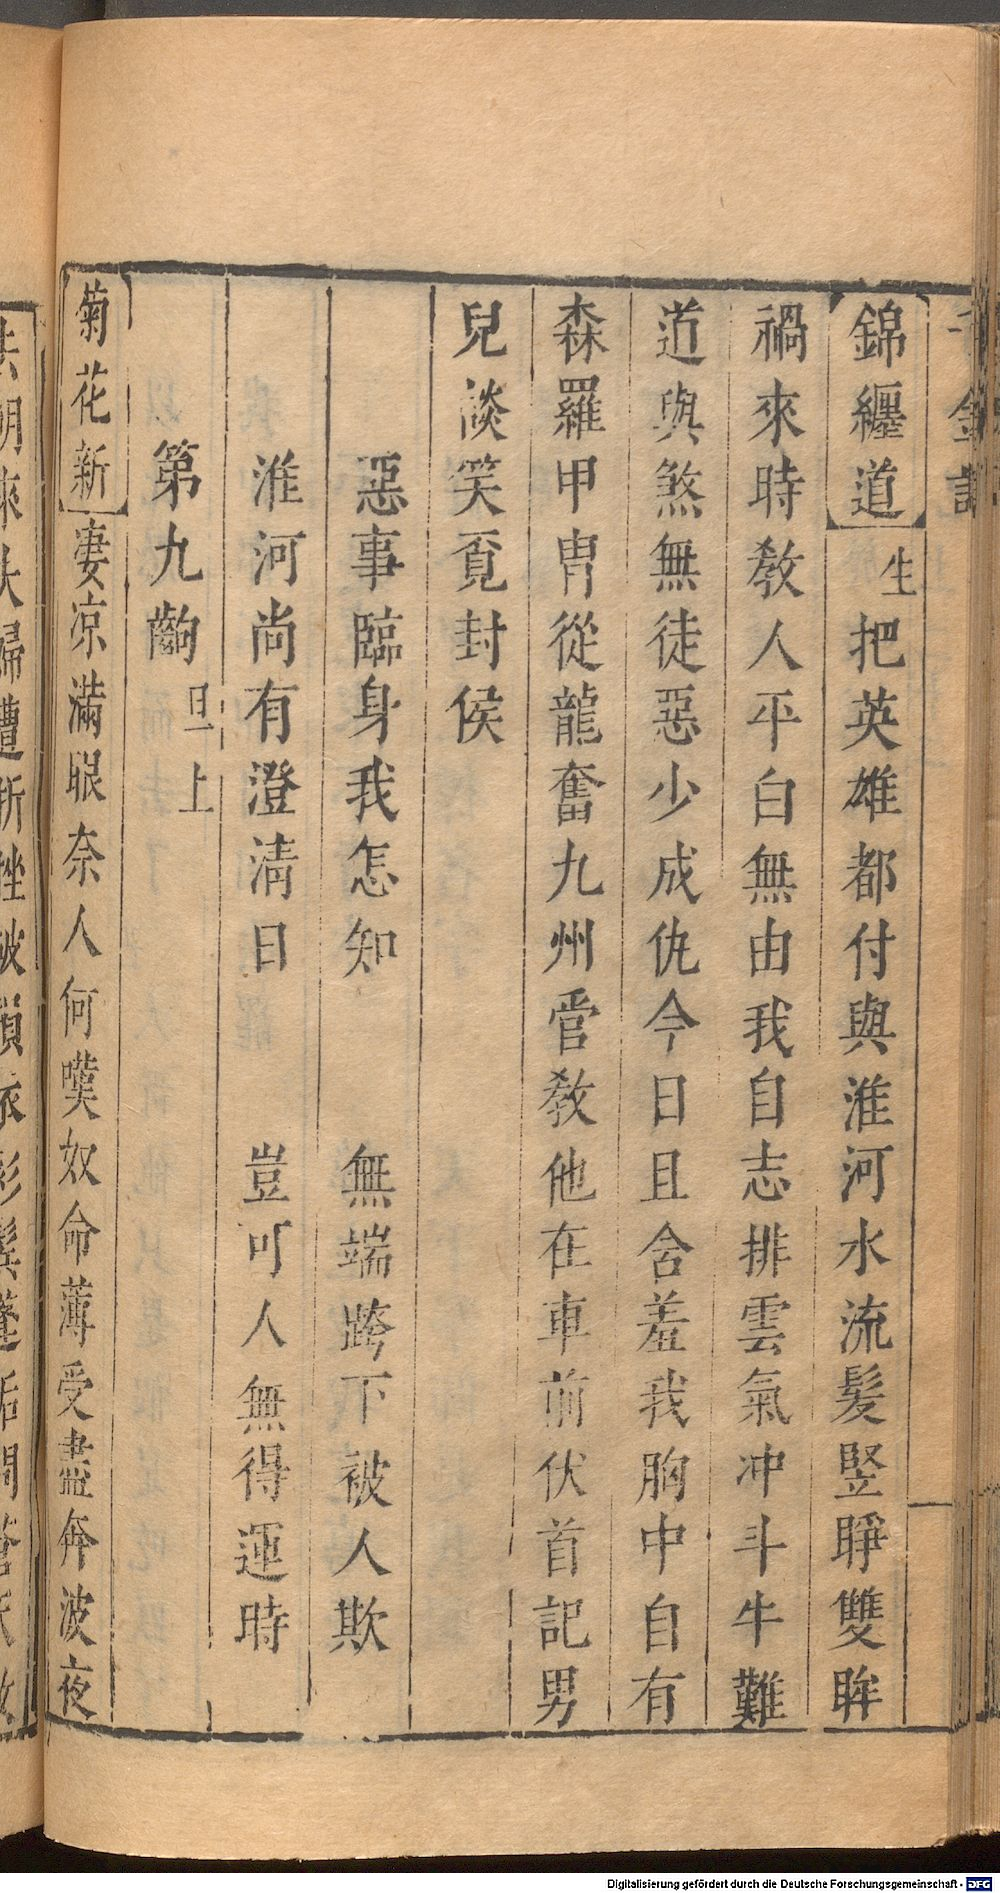 千金記
錦纏道 生 把英雄都付與淮河水流髪竪睜雙眸
禍來時教人平白無由我自志排雲氣冲斗牛難
道與煞無徒惡少成仇今日且含羞我胸中自有
森羅甲冑從龍奮九州管教他在車前伏首記男
兒談笑覔封侯
惡事臨身我怎知 無端跨下被人欺
淮河尚有澄清日 豈可人無得運時
第九齣 旦上
菊花新 凄凉滿眼奈人何嘆奴命薄受盡奔波夜
Digitalisierung gefördert durch die Deutsche Forschungsgemeinschaft - DFG